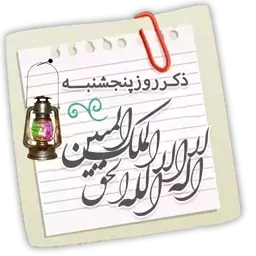 ذکر روز پنجشنبه
لا اله الا الله الملک الحق المبین